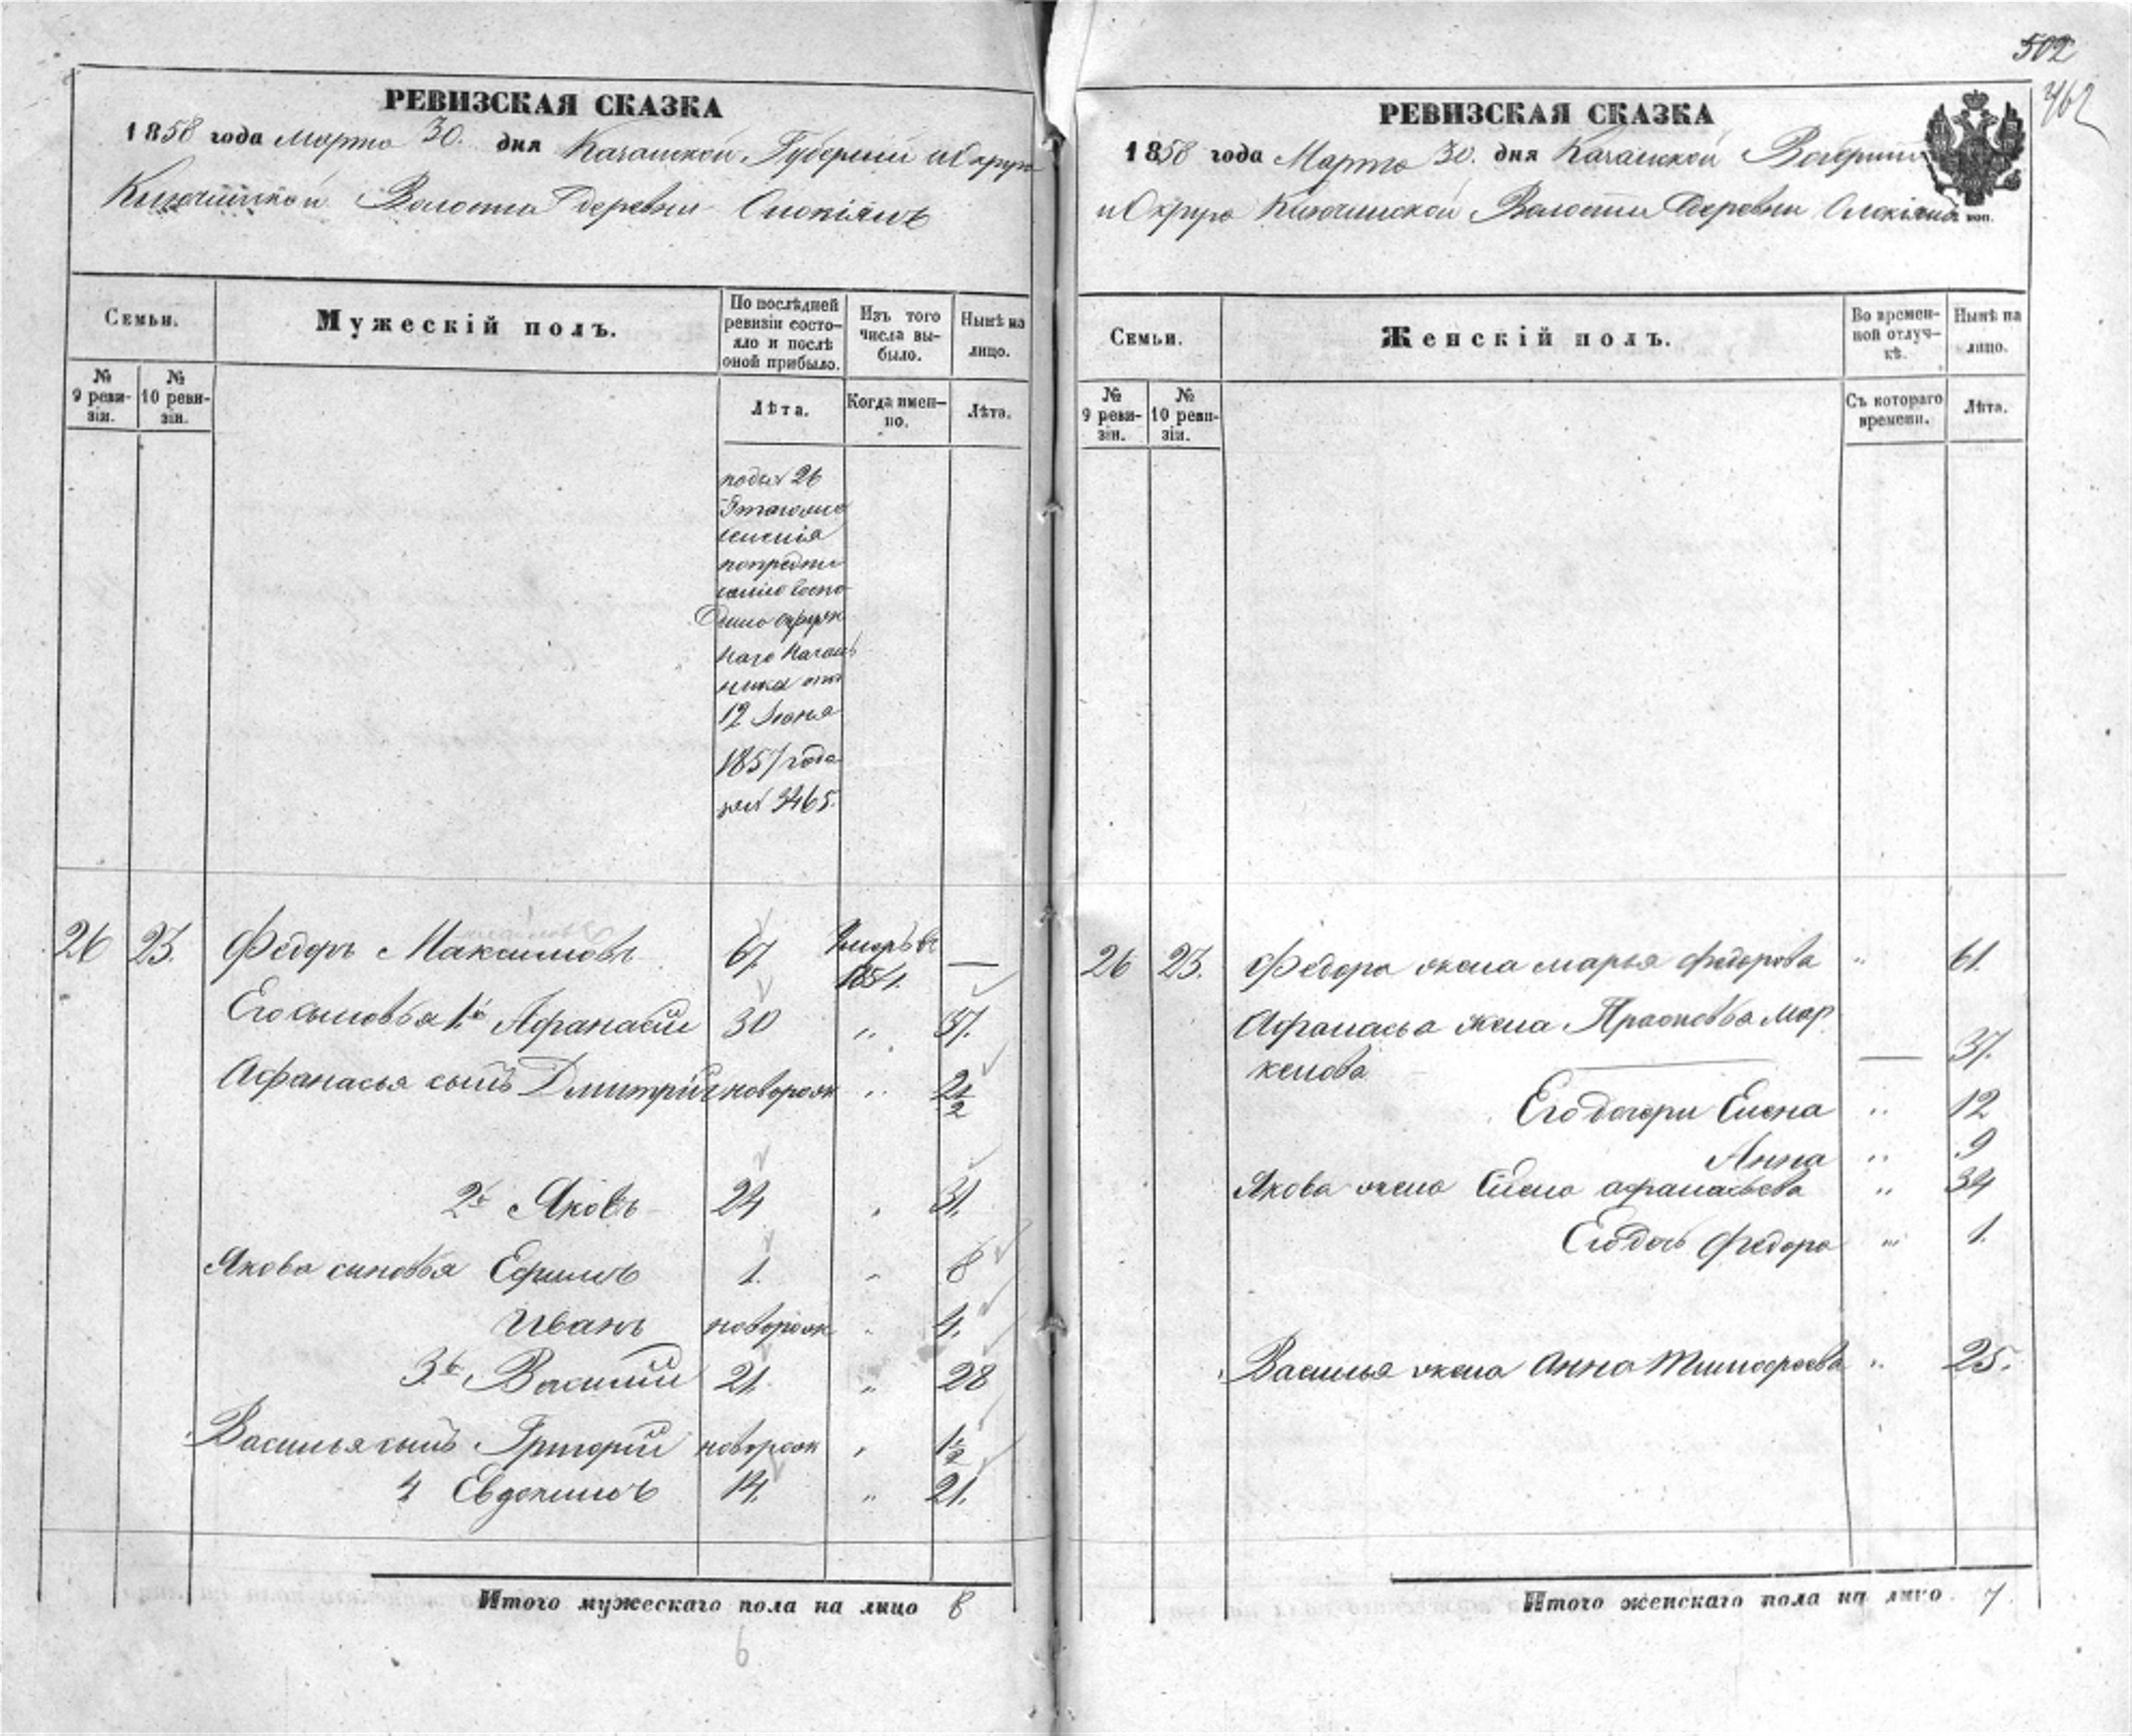 РЕВИЗСКАЯ СКАЗКА
1858 года Марта 30. дня Губернии и Округа
Волости деревни
Семьи.
Мужескій полъ.
По послѣдней ревизіи состояло и послѣ оной прибыло.
Изъ того числа выбыло.
Нынѣ на лицо.
№ 9 ревизіи.
№ 10 ревизіи.
Лѣта.
Когда именно.
Лѣта.
12 Іюня
1857 года
3465.
26 23. Федоръ Максимовъ 67. 1851. —
Его сыновья 1й Афанасій 30 „ 37.
Афанасья сынъ Дмитрій новорож „ 2 1/2
2й Яковъ 24 „ 31.
Якова сыновья Ефимъ 1. „ 8
Иванъ новорож „ 4.
3й Василій 21. „ 28
Василья сынъ Григорій новорож „ 1 1/2
4 Евдокимъ 14. „ 21.
Итого мужескаго пола на лицо 8
6
502
462
РЕВИЗСКАЯ СКАЗКА
1858 года Марта 30. дня
и Округа Волости Деревни
Семьи.
Женскій полъ.
Во временной отлучкѣ.
Нынѣ на лицо.
№ 9 ревизіи.
№ 10 ревизіи.
Съ котораго времени.
Лѣта.
26 23. Федора жена Марья Федорова „ 61.
Афанасья жена Прасковья Мар
келова — 37.
Его дочери Елена „ 12
Анна „ 9
Якова жена Елена Афанасьева „ 34
Его дочь Федора „ 1.
Василья жена Анна Тимофеева „ 25.
Итого женскаго пола на лицо 7.